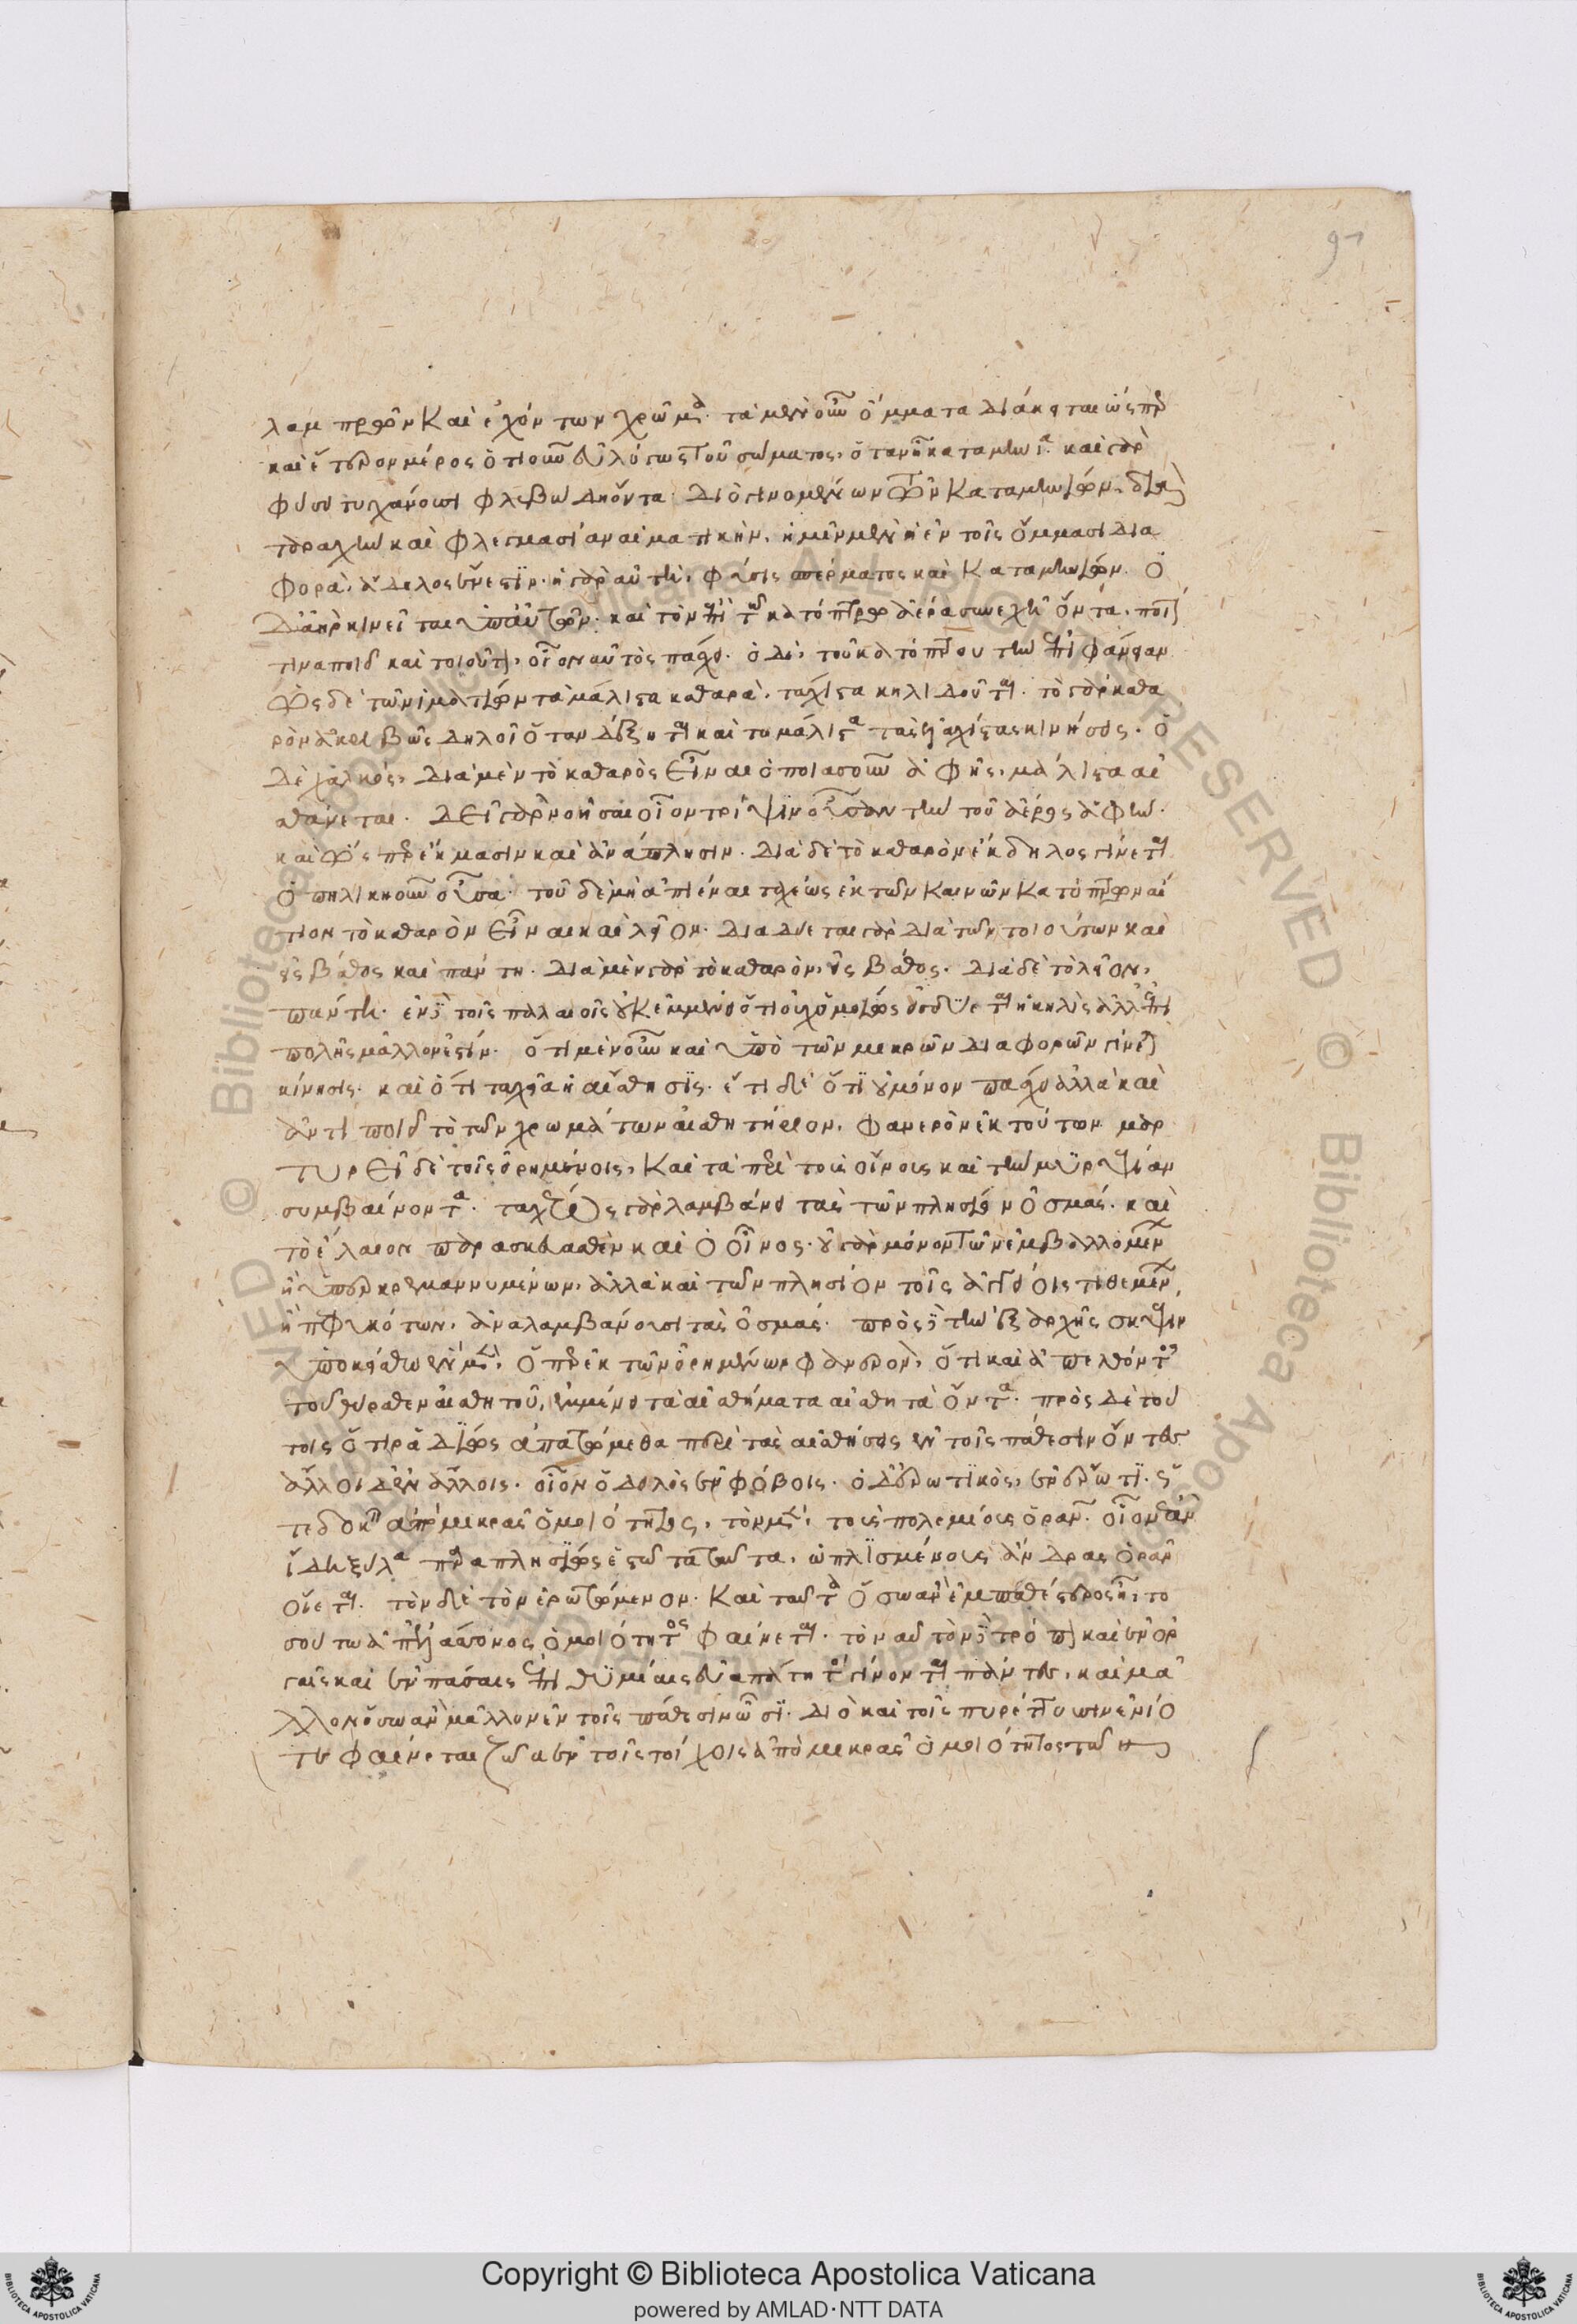 91
λαμπρῶν καὶ ἐχόντων χρῶμα. τὰ μὲν οὖν ὄμματα διάκειται ὥσπερ
καὶ ἕτερον μέρος ὁτιοῦν τοῦ σώματος. ὅταν καταμήνια. καὶ γὰρ
φύσει τυγχάνουσι φλεβώδη ὄντα. διὸ γινομένων τῶν καταμηνίων. διὰ
ταραχὴν καὶ φλεγμασίαν αἱματικήν. ἡμῖν μὲν ἡ ἐν τοῖς ὄμμασι δια
φορὰ, ἄδηλος ἔνεστιν. ἡ γὰρ αὐτὴ, φύσις σπέρματος καὶ καταμηνίων. ὁ
δ' ἀὴρ κινεῖται ὑπ' αὐτῶν. καὶ τὸν ἐπὶ τοῦ κατόπτρου ἀέρα συνεχῆ ὄντα, ποιόν
τινα ποιεῖ καὶ τοιοῦτον, οἷον αὐτὸς πάσχει. ὁ δὲ, τοῦ κατόπτρου τὴν ἐπιφάνειαν
ὡς δὲ τῶν ἱματίων τὰ μάλιστα καθαρὰ, τάχιστα κηλιδοῦται. τὸ γὰρ καθα
ρὸν ἀκριβῶς δηλοῖ ὅταν δέξηται καὶ τὸ μάλιστα τὰς ἐλαχίστας κινήσεις. ὁ
δὲ χαλκὸς, διὰ μὲν τὸ καθαρὸς εἶναι ὁποιασοῦν ἀφῆς, μάλιστα αἰ
σθάνεται. δεῖ γὰρ νοῆσαι οἷον τρίψιν οὖσαν τὴν τοῦ ἀέρος ἀφήν.
καὶ ὥσπερ ἔκμασιν καὶ ἀνάπλησιν. διὰ δὲ τὸ καθαρὸν ἔκδηλος γίνεται
ὁπηλικηοῦν οὖσα. τοῦ δὲ μὴ ἀπιέναι ταχέως ἐκ τῶν καινῶν κατόπτρων αἴ
τιον τὸ καθαρὸν εἶναι καὶ λεῖον. διαδύεται γὰρ διὰ τῶν τοιούτων καὶ
εἰς βάθος καὶ πάντη. διὰ μὲν γὰρ τὸ καθαρὸν, εἰς βάθος. διὰ δὲ τὸ λεῖον,
πάντη. ἐν δὲ τοῖς παλαιοῖς οὐκ ἐμμένει ὅτι οὐχ ὁμοίως εἰσδύεται ἡ κηλὶς ἀλλ' ἐπι
πολῆς μᾶλλον ἐστίν. ὅτι μὲν οὖν καὶ ὑπὸ τῶν μικρῶν διαφορῶν γίνεται
κίνησις. καὶ ὅτι ταχεῖα ἡ αἴσθησις. ἔτι δὲ ὅτι οὐ μόνον πάσχει ἀλλὰ καὶ
ἀντιποιεῖ τὸ τῶν χρωμάτων αἰσθητήριον, φανερὸν ἐκ τούτων μαρ
τυρεῖ δὲ τοῖς εἰρημένοις, καὶ τὰ περὶ τοὺς οἴνους καὶ τὴν μυρεψίαν
συμβαίνοντα. ταχέως γὰρ λαμβάνει τὰς τῶν πλησίον ὀσμάς. καὶ
τὸ ἔλαιον παρασκευασθὲν καὶ ὁ οἶνος. οὐ γὰρ μόνον τῶν ἐμβαλλομένων
ἢ ὑπερκρεμαννυμένων, ἀλλὰ καὶ τῶν πλησίον τοῖς ἀγγείοις τιθεμένων,
ἢ πεφυκότων, ἀναλαμβάνουσι τὰς ὀσμάς. πρὸς δὲ τὴν ἐξ ἀρχῆς σκέψιν
ὑποκείσθω ἓν μὲν, ὅπερ ἐκ τῶν εἰρημένων φανερὸν, ὅτι καὶ ἀπελθόντος
τοῦ θύραθεν αἰσθητοῦ, ἐμμένει τὰ αἰσθήματα αἰσθητὰ ὄντα. πρὸς δὲ τού
τοις ὅτι ῥᾳδίως ἀπατώμεθα περὶ τὰς αἰσθήσεις ἐν τοῖς πάθεσιν ὄντες
ἄλλοι δ' ἐν ἄλλοις. οἷον ὁ δειλὸς ἐν φόβοις. ὁ δ' ἐρωτικὸς, ἐν ἔρωτι. ὥσ
τε δοκεῖν ἀπὸ μικρᾶς ὁμοιότητος, τὸν μὲν, τοὺς πολεμίους ὁρᾶν.
οἴεται. τὸν δὲ τὸν ἐρώμενον. καὶ ταῦτα ὅσῳ ἂν ἐμπαθέστερος ᾖ, το
σούτῳ ἀπ' ἐλάσσονος ὁμοιότητος φαίνεται. τὸν αὐτὸν δὲ τρόπον καὶ ἐν ὀρ
γαῖς καὶ ἐν πάσαις ἐπιθυμίαις εὐαπάτητοι γίνονται πάντες, καὶ μᾶ
λλον ὅσῳ ἂν μᾶλλον ἐν τοῖς πάθεσιν ὦσι. διὸ καὶ τοῖς πυρέττουσιν ἐνίο
τε φαίνεται ζῷα ἐν τοῖς τοίχοις ἀπὸ μικρᾶς ὁμοιότητος τῶν
Copyright © Biblioteca Apostolica Vaticana
powered by AMLAD·NTT DATA